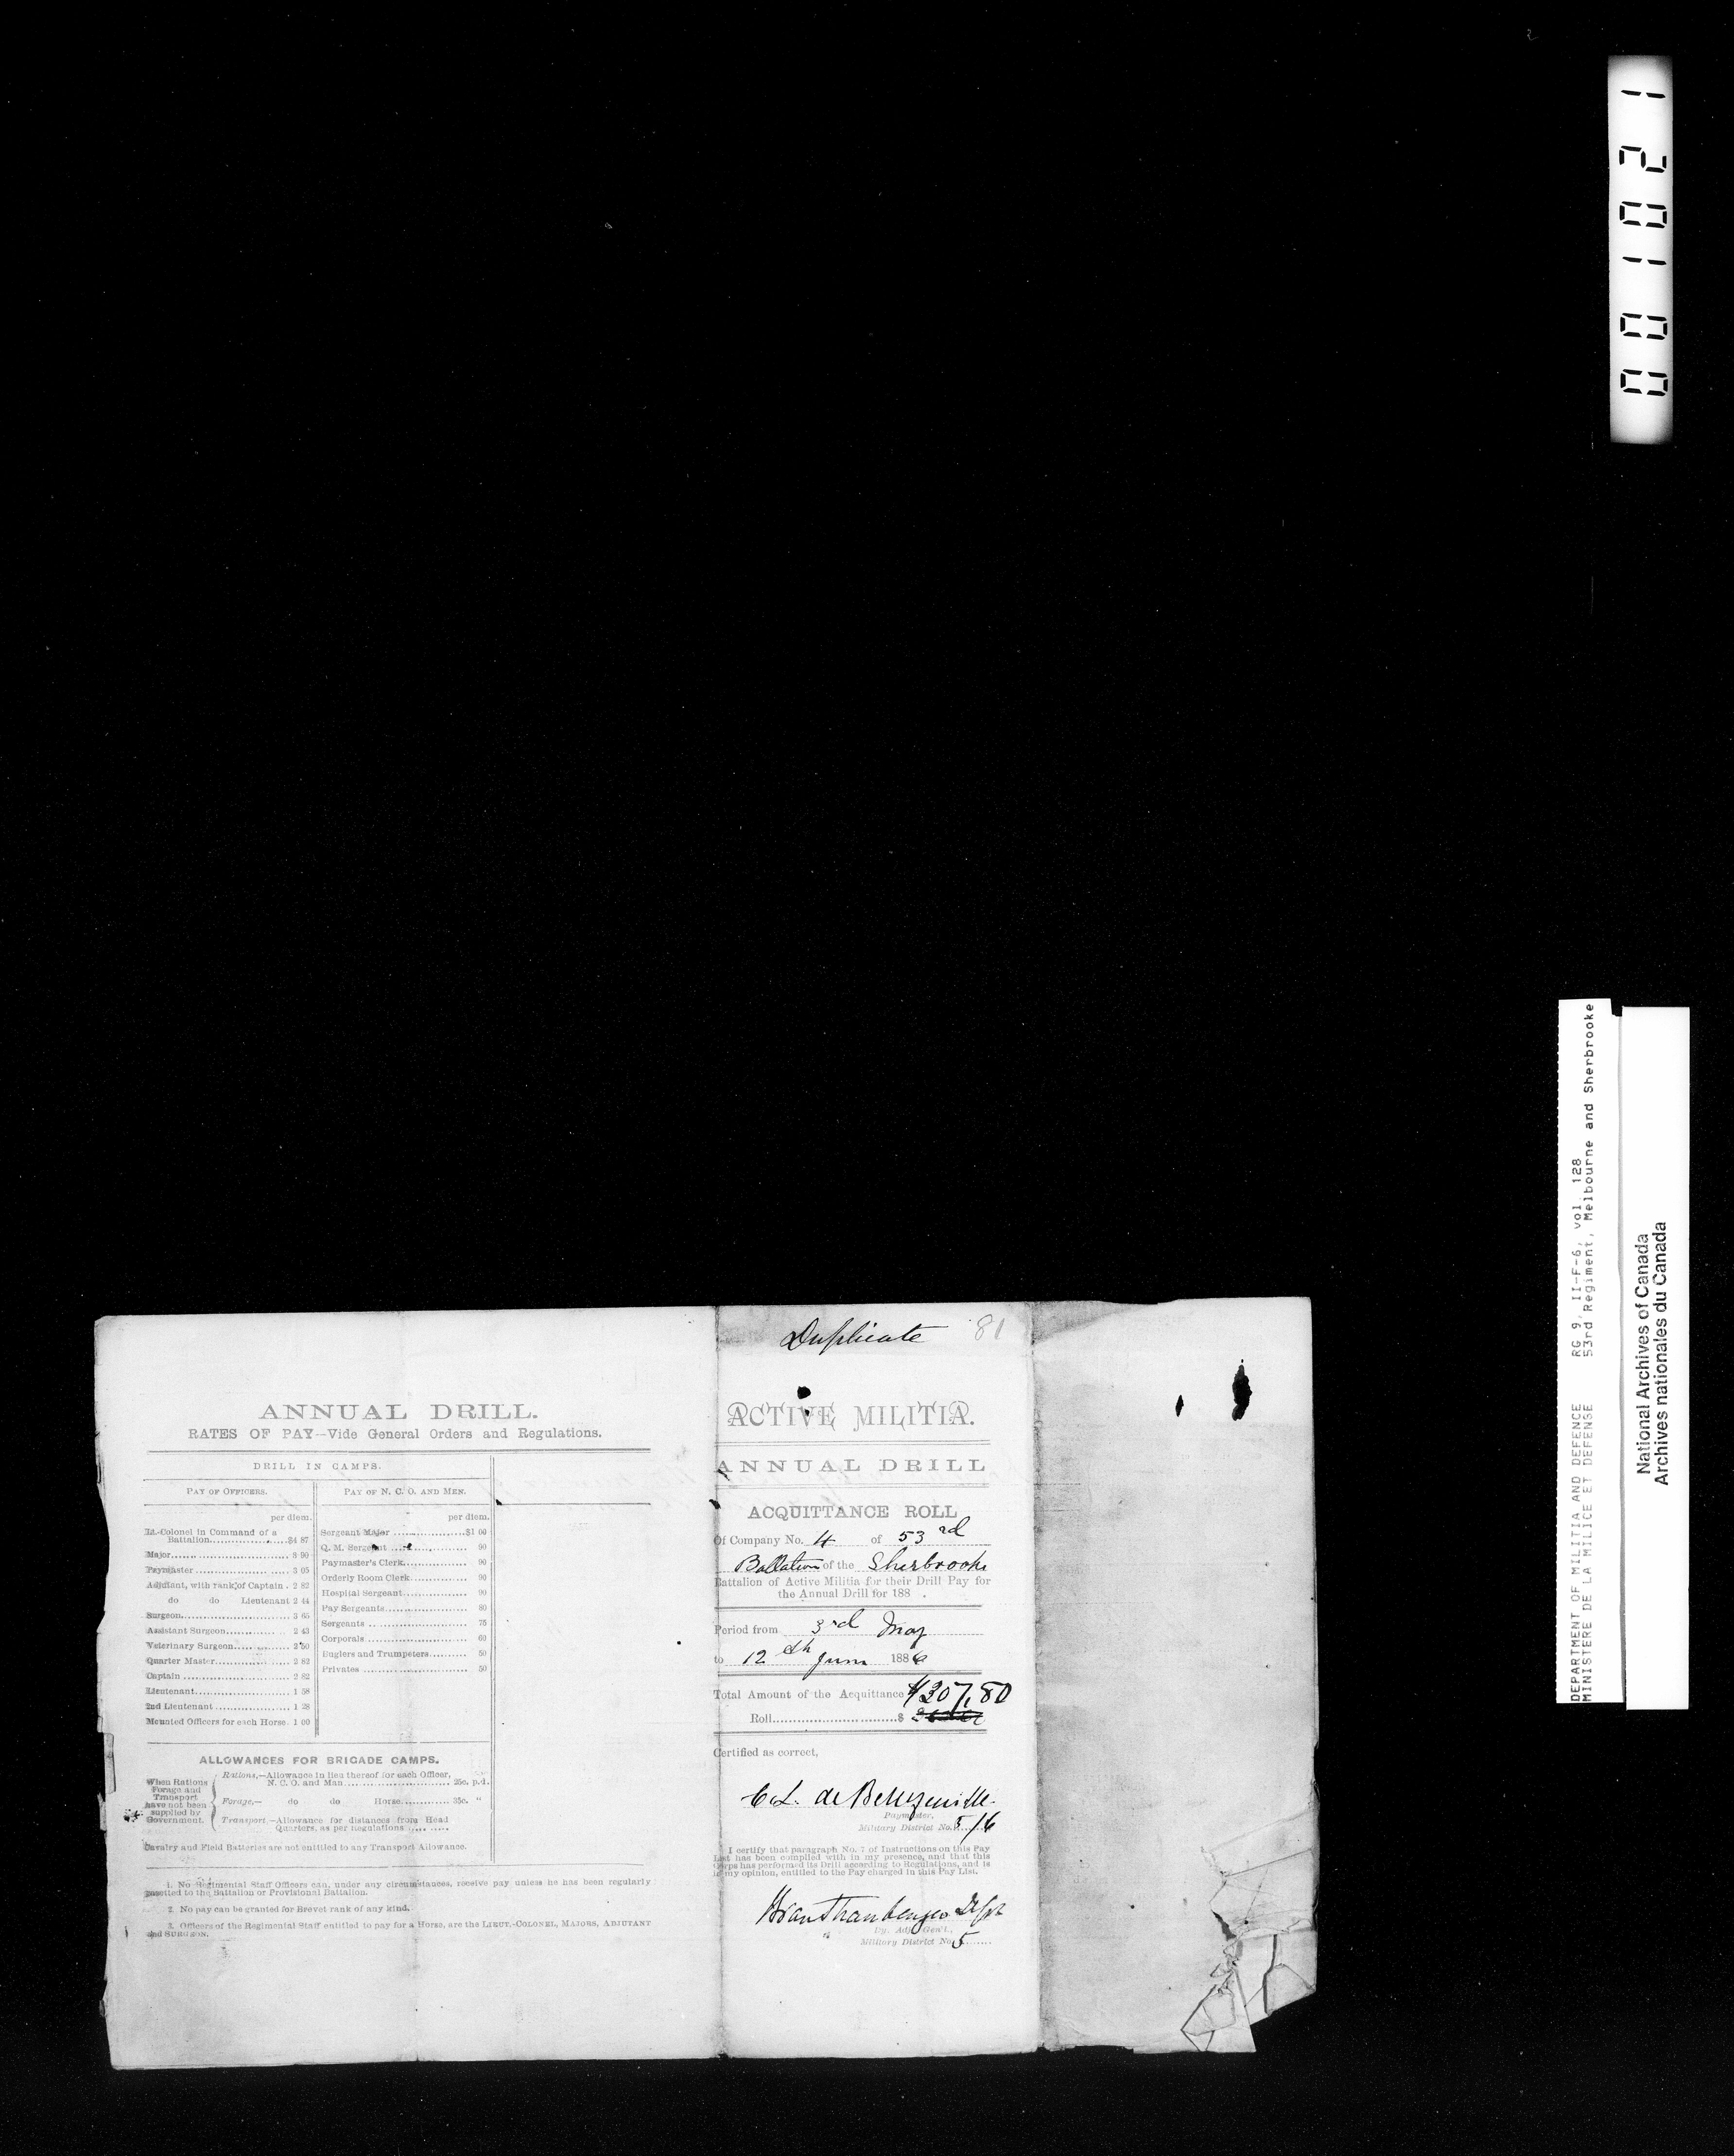 001021
DEPARTMENT OF MILITIA AND DEFENCE RG 9, II-F-6, vol. 128
MINISTERE DE LA MILICE ET DEFENSE 53rd Regiment, Melbourne and Sherbrooke
National Archives of Canada
Archives nationales du Canada
ANNUAL DRILL.
RATES OF PAY—Vide General Orders and Regulations.
DRILL IN CAMPS.
PAY OF OFFICERS.
per diem.
Lt.-Colonel in Command of a
Battalion..................$4 87
Major.............................. 3 90
Paymaster ........................ 3 05
Adjutant, with rank of Captain . 2 82
do do Lieutenant 2 44
Surgeon............................ 3 65
Assistant Surgeon............... 2 43
Veterinary Surgeon.............. 2 50
Quarter Master................... 2 82
Captain ........................... 2 82
Lieutenant......................... 1 58
2nd Lieutenant ................... 1 28
Mounted Officers for each Horse. 1 00
PAY OF N. C. O. AND MEN.
per diem.
Sergeant Major ..................$1 00
Q. M. Sergeant .................. 90
Paymaster's Clerk................ 90
Orderly Room Clerk.............. 90
Hospital Sergeant................ 90
Pay Sergeants..................... 80
Sergeants ......................... 75
Corporals .......................... 60
Buglers and Trumpeters......... 50
Privates ........................... 50
ALLOWANCES FOR BRIGADE CAMPS.
When Rations
Forage and
Transport
have not been
supplied by
Government.
Rations,—Allowance in lieu thereof for each Officer,
N. C. O. and Man .......................... 25c. p.d.
Forage,— do do Horse............ 35c. "
Transport.—Allowance for distances from Head
Quarters, as per Regulations .... ......
Cavalry and Field Batteries are not entitled to any Transport Allowance.
1. No Regimental Staff Officers can, under any circumstances, receive pay unless he has been regularly
gazetted to the Battalion or Provisional Battalion.
2. No pay can be granted for Brevet rank of any kind.
3. Officers of the Regimental Staff entitled to pay for a Horse, are the LIEUT.-COLONEL, MAJORS, ADJUTANT
and SURGEON.
Duplicate 81
ACTIVE MILITIA.
ANNUAL DRILL
ACQUITTANCE ROLL
Of Company No. 4 of 53rd
Battalion of the Sherbrooke
Battalion of Active Militia for their Drill Pay for
the Annual Drill for 188 .
Period from 3rd May
to 12th June 1886
Total Amount of the Acquittance $307.80
Roll............................$
Certified as correct,
Paymaster,
Military District No. 5/6
I certify that paragraph No. 7 of Instructions on this Pay
List has been complied with in my presence, and that this
Corps has performed its Drill according to Regulations, and is
in my opinion, entitled to the Pay charged in this Pay List.
Dy. Adj. Gen'l.,
Military District No. 5